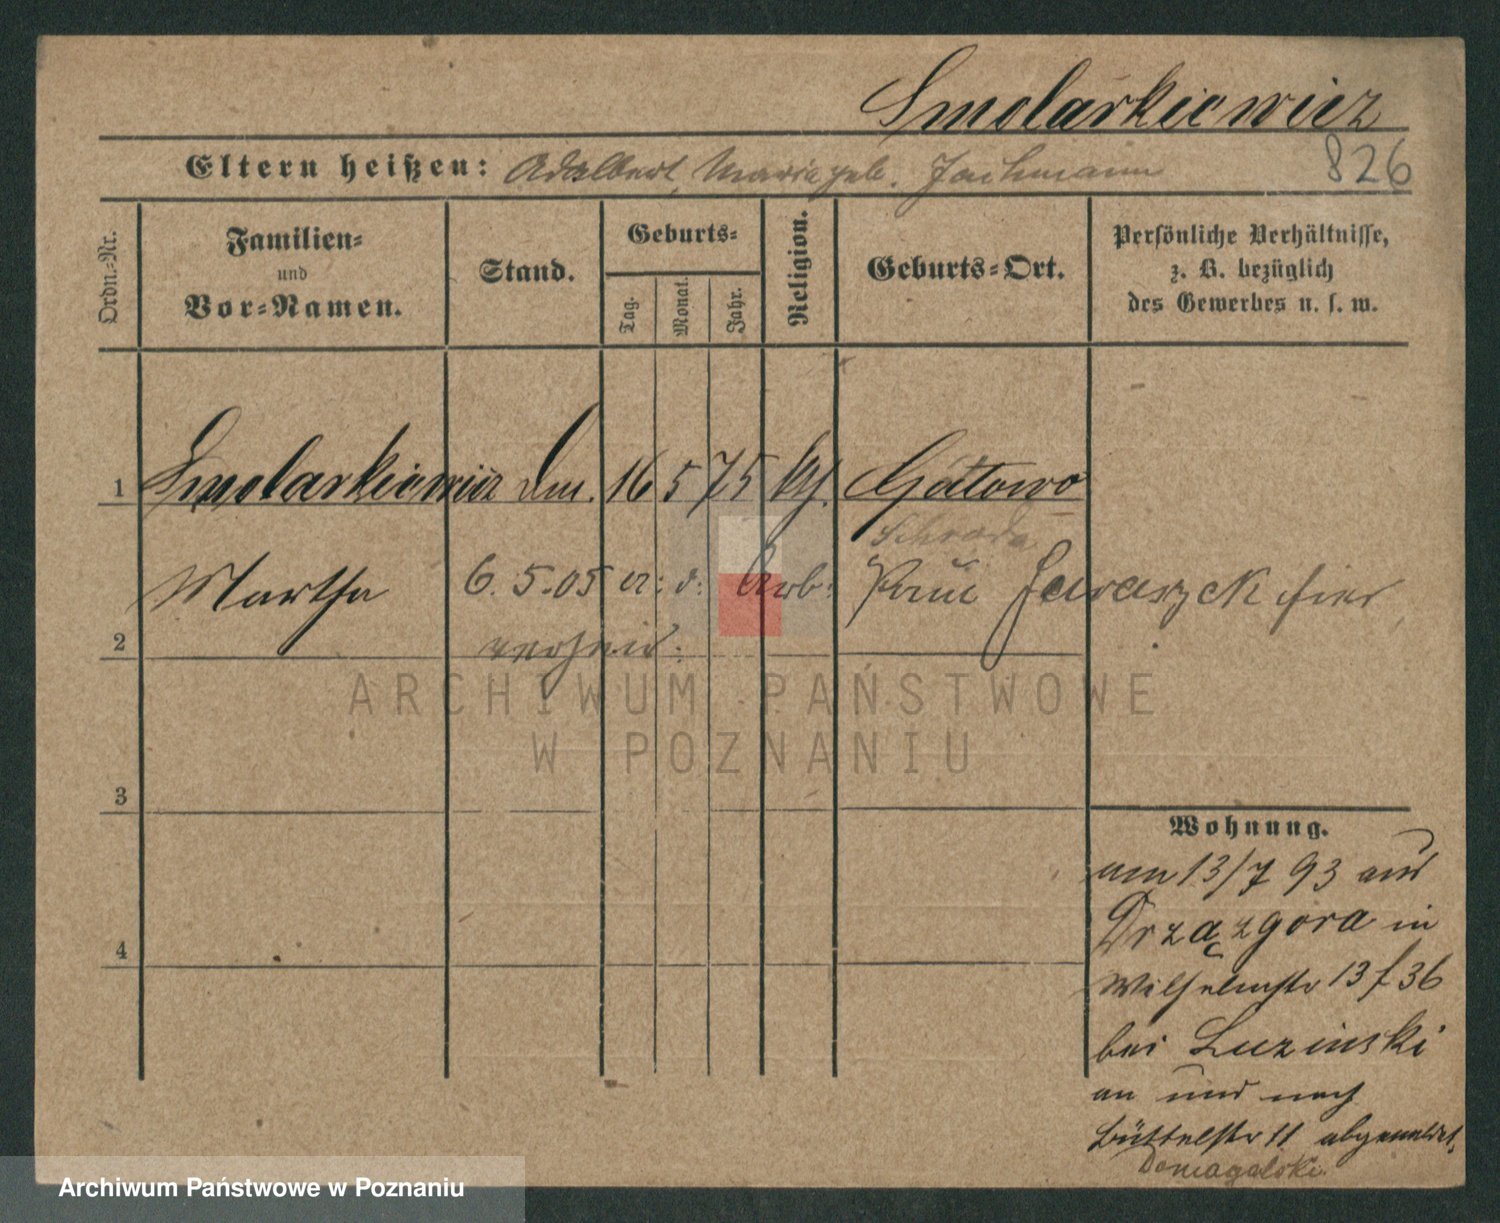 Smolarkiewicz
826
Eltern heißen: Adalbert, Maria geb. Jachmann
Ordn.-Nr.
Familien-
und
Vor-Namen.
Stand.
Geburts-
Tag.
Monat.
Jahr.
Religion.
Geburts-Ort.
Persönliche Verhältnisse,
z. B. bezüglich
des Gewerbes u. s. w.
1 Smolarkiewicz 16 5 75 Gátowo
Schroda
Martha 6.5.05 Arb: Paul hier
2
3
4
Wohnung.
am 13/7 93 aus
Drzązgora in
Wilhelmstr 13 f 36
bei Luzinski
an und nach
Büttelstr 11 abgemeldet.
Domagalski
ARCHIWUM PAŃSTWOWE
W POZNANIU
Archiwum Państwowe w Poznaniu